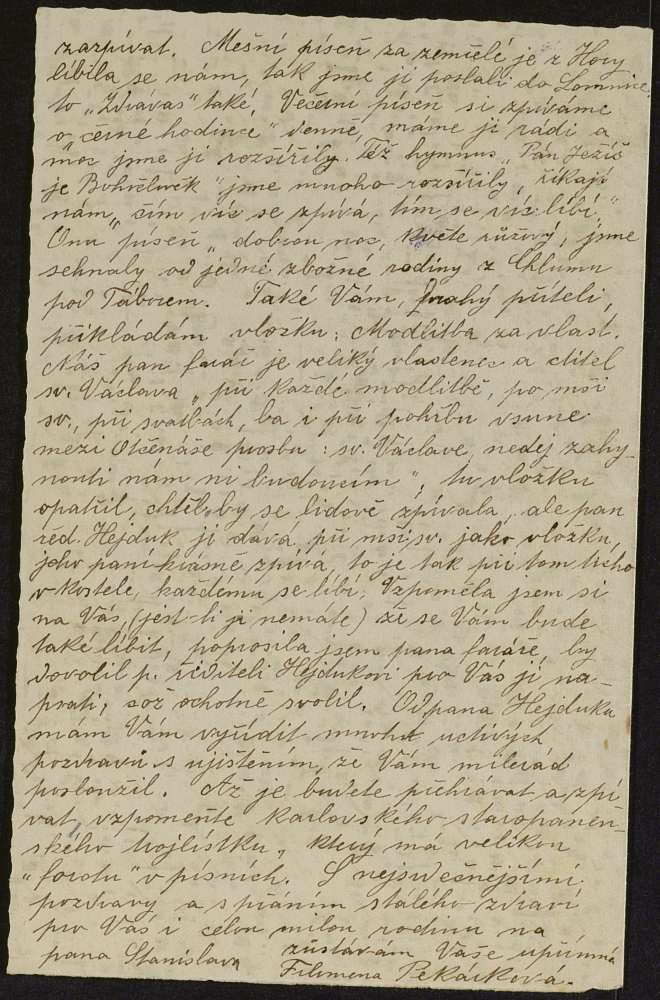 zazpívat. Mešní píseň za zemřelé je z Hory
líbila se nám, tak jsme ji poslali do Lomnice,
to „Zdrávas" také. Večerní píseň si zpíváme
o „černé hodince" denně, máme ji rádi a
moc jsme ji rozšířily. Též hymnus „Pán Ježíš
je Bohočlověk" jsme mnoho rozšířily, říkají
nám „čím víc se zpívá, tím se víc líbí."
Onu píseň „dobrou noc, květe růžový, jsme
sehnaly od jedné zbožné rodiny z Chlumu
pod Táborem. Také Vám, drahý příteli,
přikládám vložku: Modlitba za vlast.
Náš pan farář je veliký vlastenec a ctitel
sv. Václava „při každé modlitbě, po mši
sv., při svatbách, ba i při pohřbu vsune
mezi Otčenáše prosbu: sv. Václave, nedej zahy-
nouti nám ni budoucím", tu vložku
opatřil, chtěl, by se lidově zpívala, ale pan
řed. Hejduk ji dává při mši sv. jako vložku,
jeho paní krásně zpívá, to je tak při tom ticho
v kostele, každému se líbí. Vzpoměla jsem si
na Vás, (jest-li ji nemáte) že se Vám bude
také líbit, poprosila jsem pana faráře, by
dovolil p. řediteli Hejdukovi pro Vás ji na-
psati, což ochotně svolil. Od pana Hejduka
mám Vám vyřídit mnoho uctivých
pozdravů s ujištěním, že Vám milerád
posloužil. Až je budete přehrávat a zpí-
vat, vzpomeňte karlovského staropanen-
ského trojlístku, který má velikou
„forotu" v písních. S nejsrdečnějšími
pozdravy a s přáním stálého zdraví
pro Vás i celou milou rodinu na
pana Stanislava zůstávám Vaše upřímná
Filomena Pekárková.